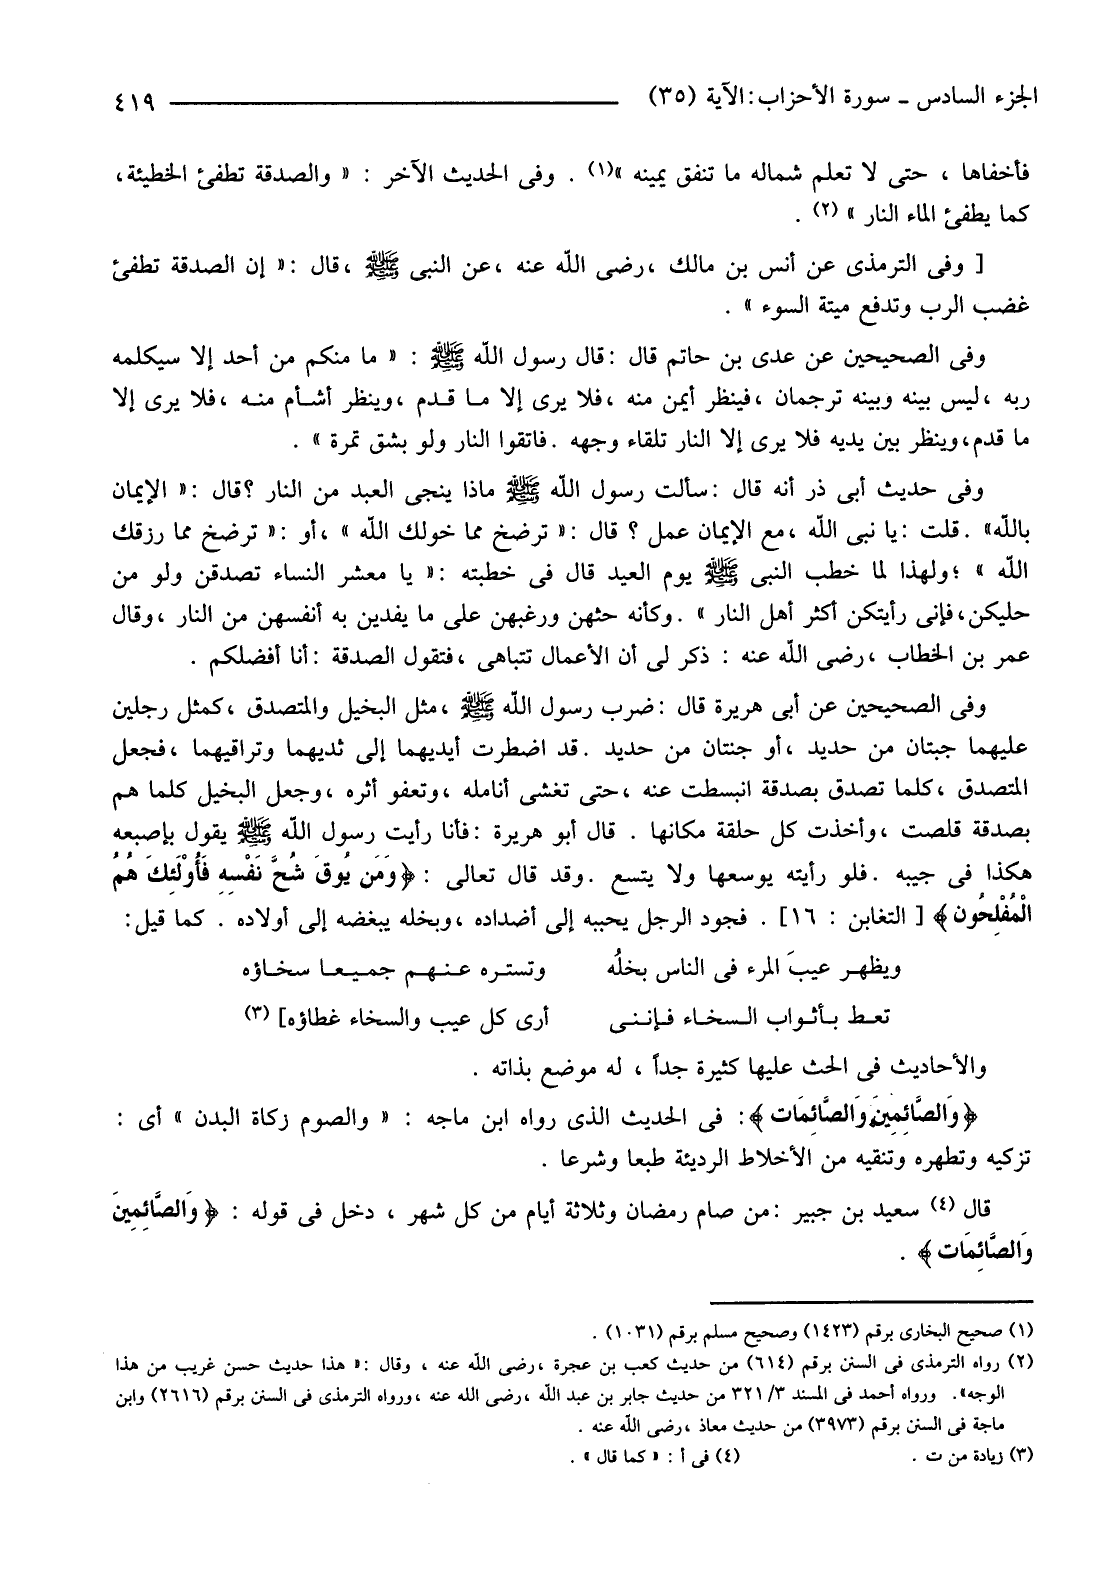 الجزء السادس ـ سورة الأحزاب : الآية (٣٥) ٤١٩
فأخفاها ، حتى لا تعلم شماله ما تنفق يمينه »(١) . وفى الحديث الآخر : « والصدقة تطفئ الخطيئة ،
كما يطفئ الماء النار » (٢) .
[ وفى الترمذى عن أنس بن مالك ، رضى الله عنه ، عن النبى ﷺ ، قال : « إن الصدقة تطفئ
غضب الرب وتدفع ميتة السوء » .
وفى الصحيحين عن عدى بن حاتم قال : قال رسول الله ﷺ : « ما منكم من أحد إلا سيكلمه
ربه ، ليس بينه وبينه ترجمان ، فينظر أيمن منه ، فلا يرى إلا ما قدم ، وينظر أشأم منه ، فلا يرى إلا
ما قدم، وينظر بين يديه فلا يرى إلا النار تلقاء وجهه . فاتقوا النار ولو بشق تمرة » .
وفى حديث أبى ذر أنه قال : سألت رسول الله ﷺ ماذا ينجى العبد من النار ؟ قال : « الإيمان
بالله» . قلت : يا نبى الله ، مع الإيمان عمل ؟ قال : « ترضخ مما خولك الله » ، أو : « ترضخ مما رزقك
الله » ؛ ولهذا لما خطب النبى ﷺ يوم العيد قال فى خطبته : « يا معشر النساء تصدقن ولو من
حليكن، فإنى رأيتكن أكثر أهل النار » . وكأنه حثهن ورغبهن على ما يفدين به أنفسهن من النار ، وقال
عمر بن الخطاب ، رضى الله عنه : ذكر لى أن الأعمال تتباهى ، فتقول الصدقة : أنا أفضلكم .
وفى الصحيحين عن أبى هريرة قال : ضرب رسول الله ﷺ ، مثل البخيل والمتصدق ، كمثل رجلين
عليهما جبتان من حديد ، أو جنتان من حديد . قد اضطرت أيديهما إلى ثديهما وتراقيهما ، فجعل
المتصدق ، كلما تصدق بصدقة انبسطت عنه ، حتى تغشى أنامله ، وتعفو أثره ، وجعل البخيل كلما هم
بصدقة قلصت ، وأخذت كل حلقة مكانها . قال أبو هريرة : فأنا رأيت رسول الله ﷺ يقول بإصبعه
هكذا فى جيبه . فلو رأيته يوسعها ولا يتسع . وقد قال تعالى : ﴿ وَمَن يُوقَ شُحَّ نَفْسِهِ فَأُوْلَئِكَ هُمُ
الْمُفْلِحُون ﴾ [ التغابن : ١٦] . فجود الرجل يحببه إلى أضداده ، وبخله يبغضه إلى أولاده . كما قيل :
ويظهر عيبَ المرء فى الناس بخلُه وتستره عنهم جميعا سخاؤه
تعط بأثواب السخاء فإننى أرى كل عيب والسخاء غطاؤه] (٣)
والأحاديث فى الحث عليها كثيرة جداً ، له موضع بذاته .
﴿ وَالصَّائِمِينَ وَالصَّائِمَات ﴾ : فى الحديث الذى رواه ابن ماجه : « والصوم زكاة البدن » أى :
تزكيه وتطهره وتنقيه من الأخلاط الرديئة طبعا وشرعا .
قال (٤) سعيد بن جبير : من صام رمضان وثلاثة أيام من كل شهر ، دخل فى قوله : ﴿ وَالصَّائِمِينَ
وَالصَّائِمَات ﴾ .
(١) صحيح البخارى برقم (١٤٢٣) وصحيح مسلم برقم (١٠٣١) .
(٢) رواه الترمذى فى السنن برقم (٦١٤) من حديث كعب بن عجرة ، رضى الله عنه ، وقال : « هذا حديث حسن غريب من هذا
الوجه» . ورواه أحمد فى المسند ٣/ ٣٢١ من حديث جابر بن عبد الله ، رضى الله عنه ، ورواه الترمذى فى السنن برقم (٢٦١٦) وابن
ماجة فى السنن برقم (٣٩٧٣) من حديث معاذ ، رضى الله عنه .
(٣) زيادة من ت . (٤) فى أ : « كما قال » .